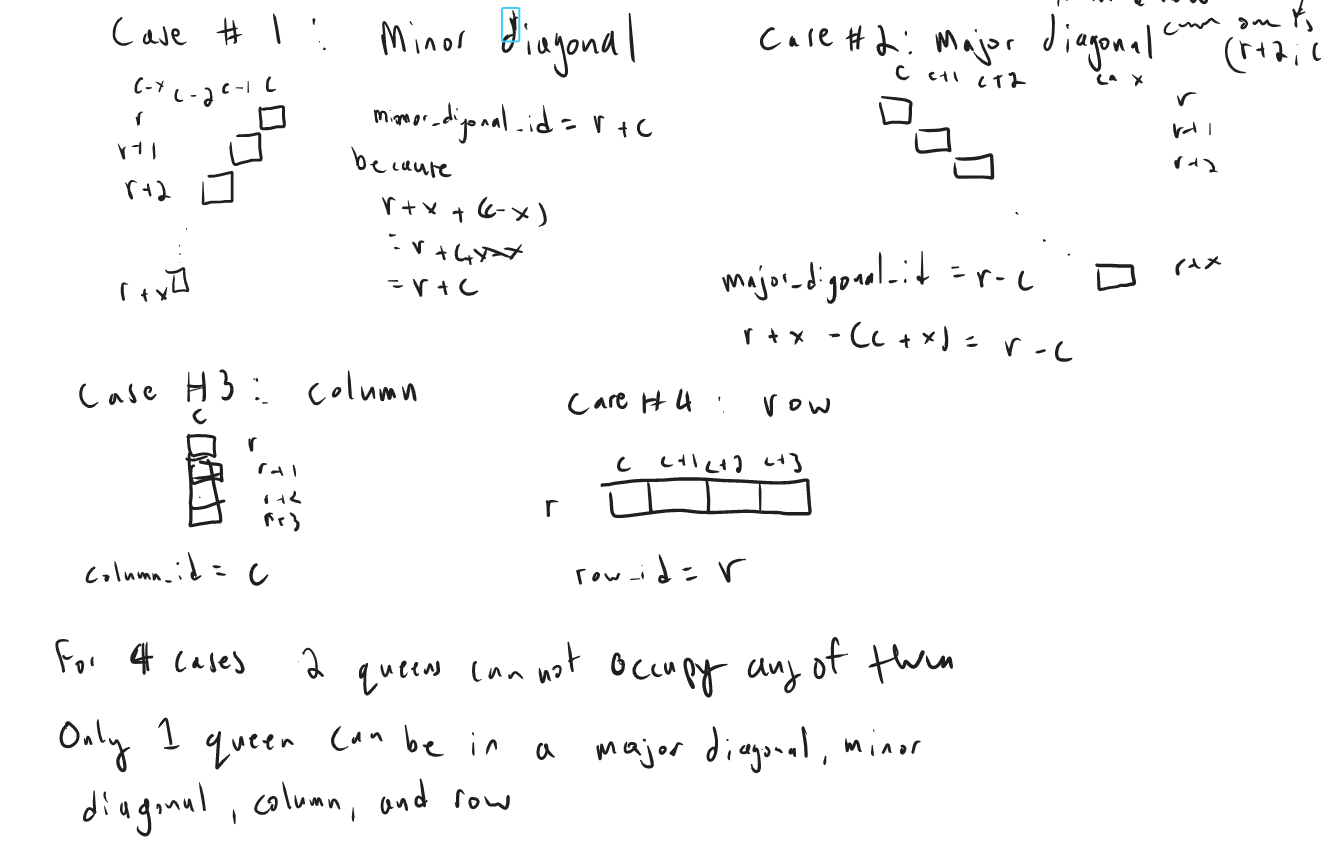 Case # 1 : Minor diagonal
c-x c-2 c-1 c
r
r+1
r+2
r+x
minor_digonal_id = r + c
because
r + x + (c - x)
= r + c
= r + c
Case #2: Major diagonal
(r+2, c
c c+1 c+2 c+x
r
r+1
r+2
r+x
major_digonal_id = r - c
r + x - (c + x) = r - c
Case #3 : column
c
r
r+1
r+2
r+3
column_id = c
Case #4 : row
c c+1 c+2 c+3
r
row_id = r
For 4 cases 2 queens can not occupy any of them
Only 1 queen can be in a major diagonal, minor
diagonal, column, and row